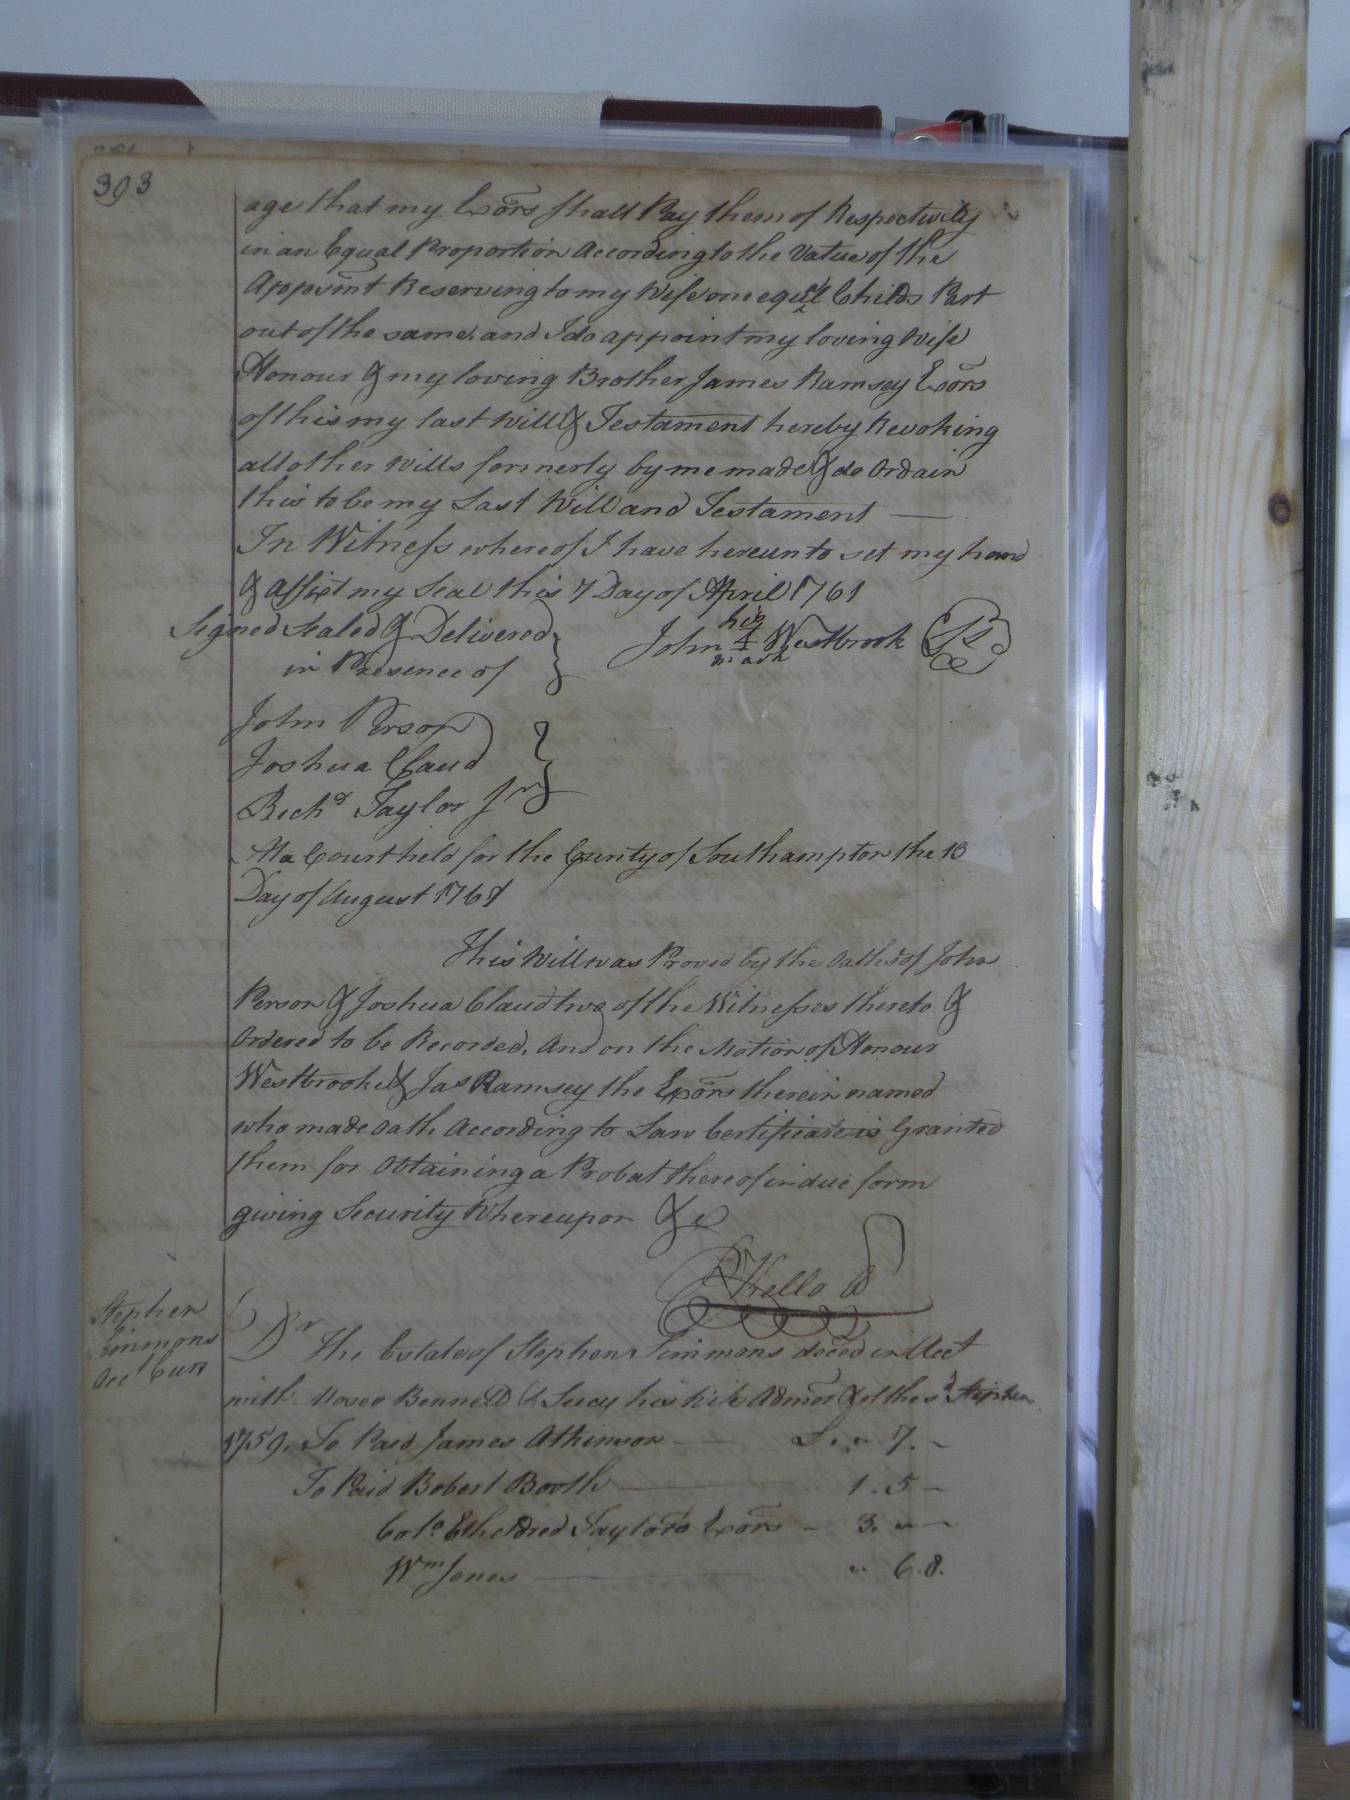 303
age that my Exors shall Pay them of Respectively
in an Equal Proportion According to the Value of the
Appromt Reserving to my Wife one equal Childs Part
out of the same, and I do appoint my loving Wife
Honour & my loving Brother James Ramsey Exors
of this my last Will & Testament hereby Revoking
all other Wills formerly by me made & do Ordain
this to be my Last Will and Testament —
In Witness whereof I have hereunto set my hand
& Affixt my Seal this 7 Day of April 1761
Signed Sealed & Delivered
in Presence of
his
John + Westbrook LS
mark
John Person
Joshua Claud
Richd Taylor Jnr
At a Court held for the County of Southampton the 13
Day of August 1761
This Will was Proved by the Oaths of John
Person & Joshua Claud two of the Witnesses thereto &
Ordered to be Recorded, And on the Motion of Honour
Westbrook & Jas Ramsey the Exors therein named
who made Oath According to Law Certificate is Granted
them for Obtaining a Probat thereof in due form
giving Security Whereupon &c
R Kello
Stephen
Simmons
Acct Curr
Dr
The Estate of Stephen Simmons deced in Acct
with Moses Bennett & Lucy his Wife Admors &c of the sd Stephen
1759. To Paid James Atkinson — £ . " 7. -
To Paid Robert Booth — 1 . 5 -
Colo Etheldred Taylors Exors - 3. " -
Wm Jones — " 6.8.